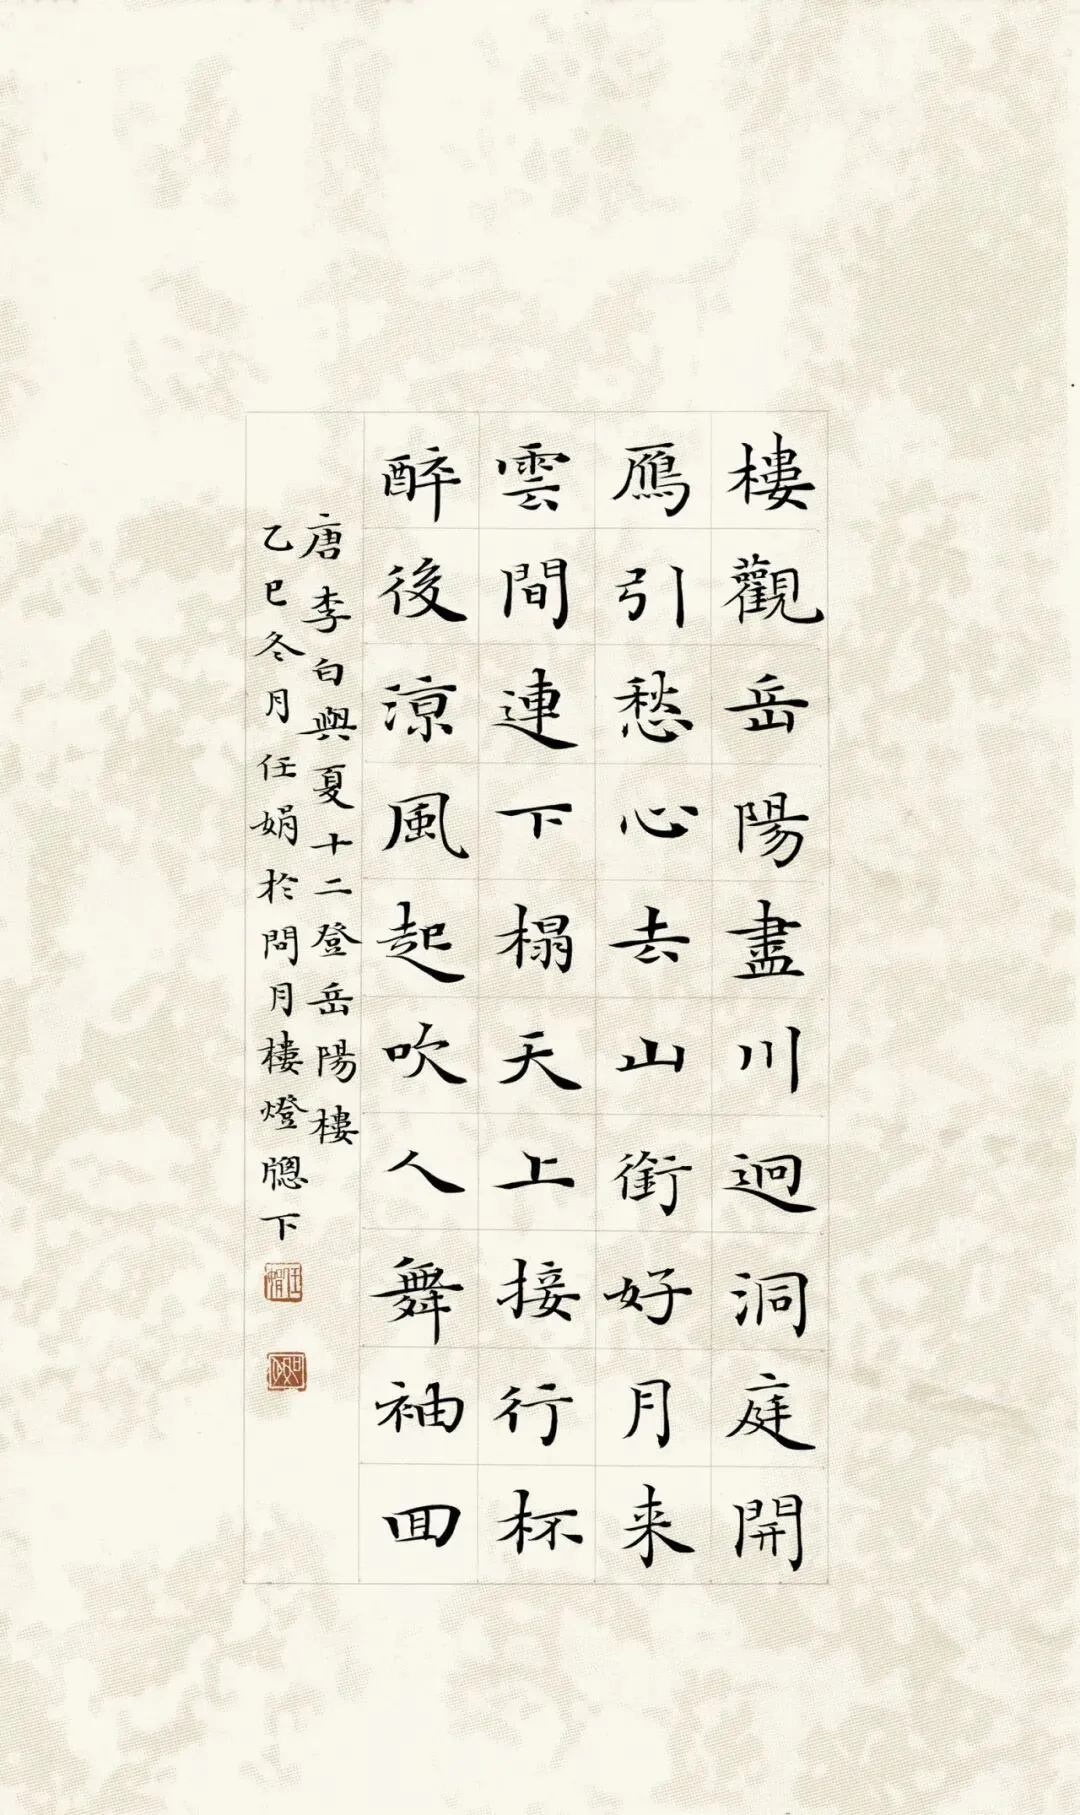 樓觀岳陽盡川迥洞庭開
鴈引愁心去山銜好月来
雲間連下榻天上接行杯
醉後涼風起吹人舞袖回
唐李白與夏十二登岳陽樓
乙巳冬月任娟於問月樓燈牕下
任娟